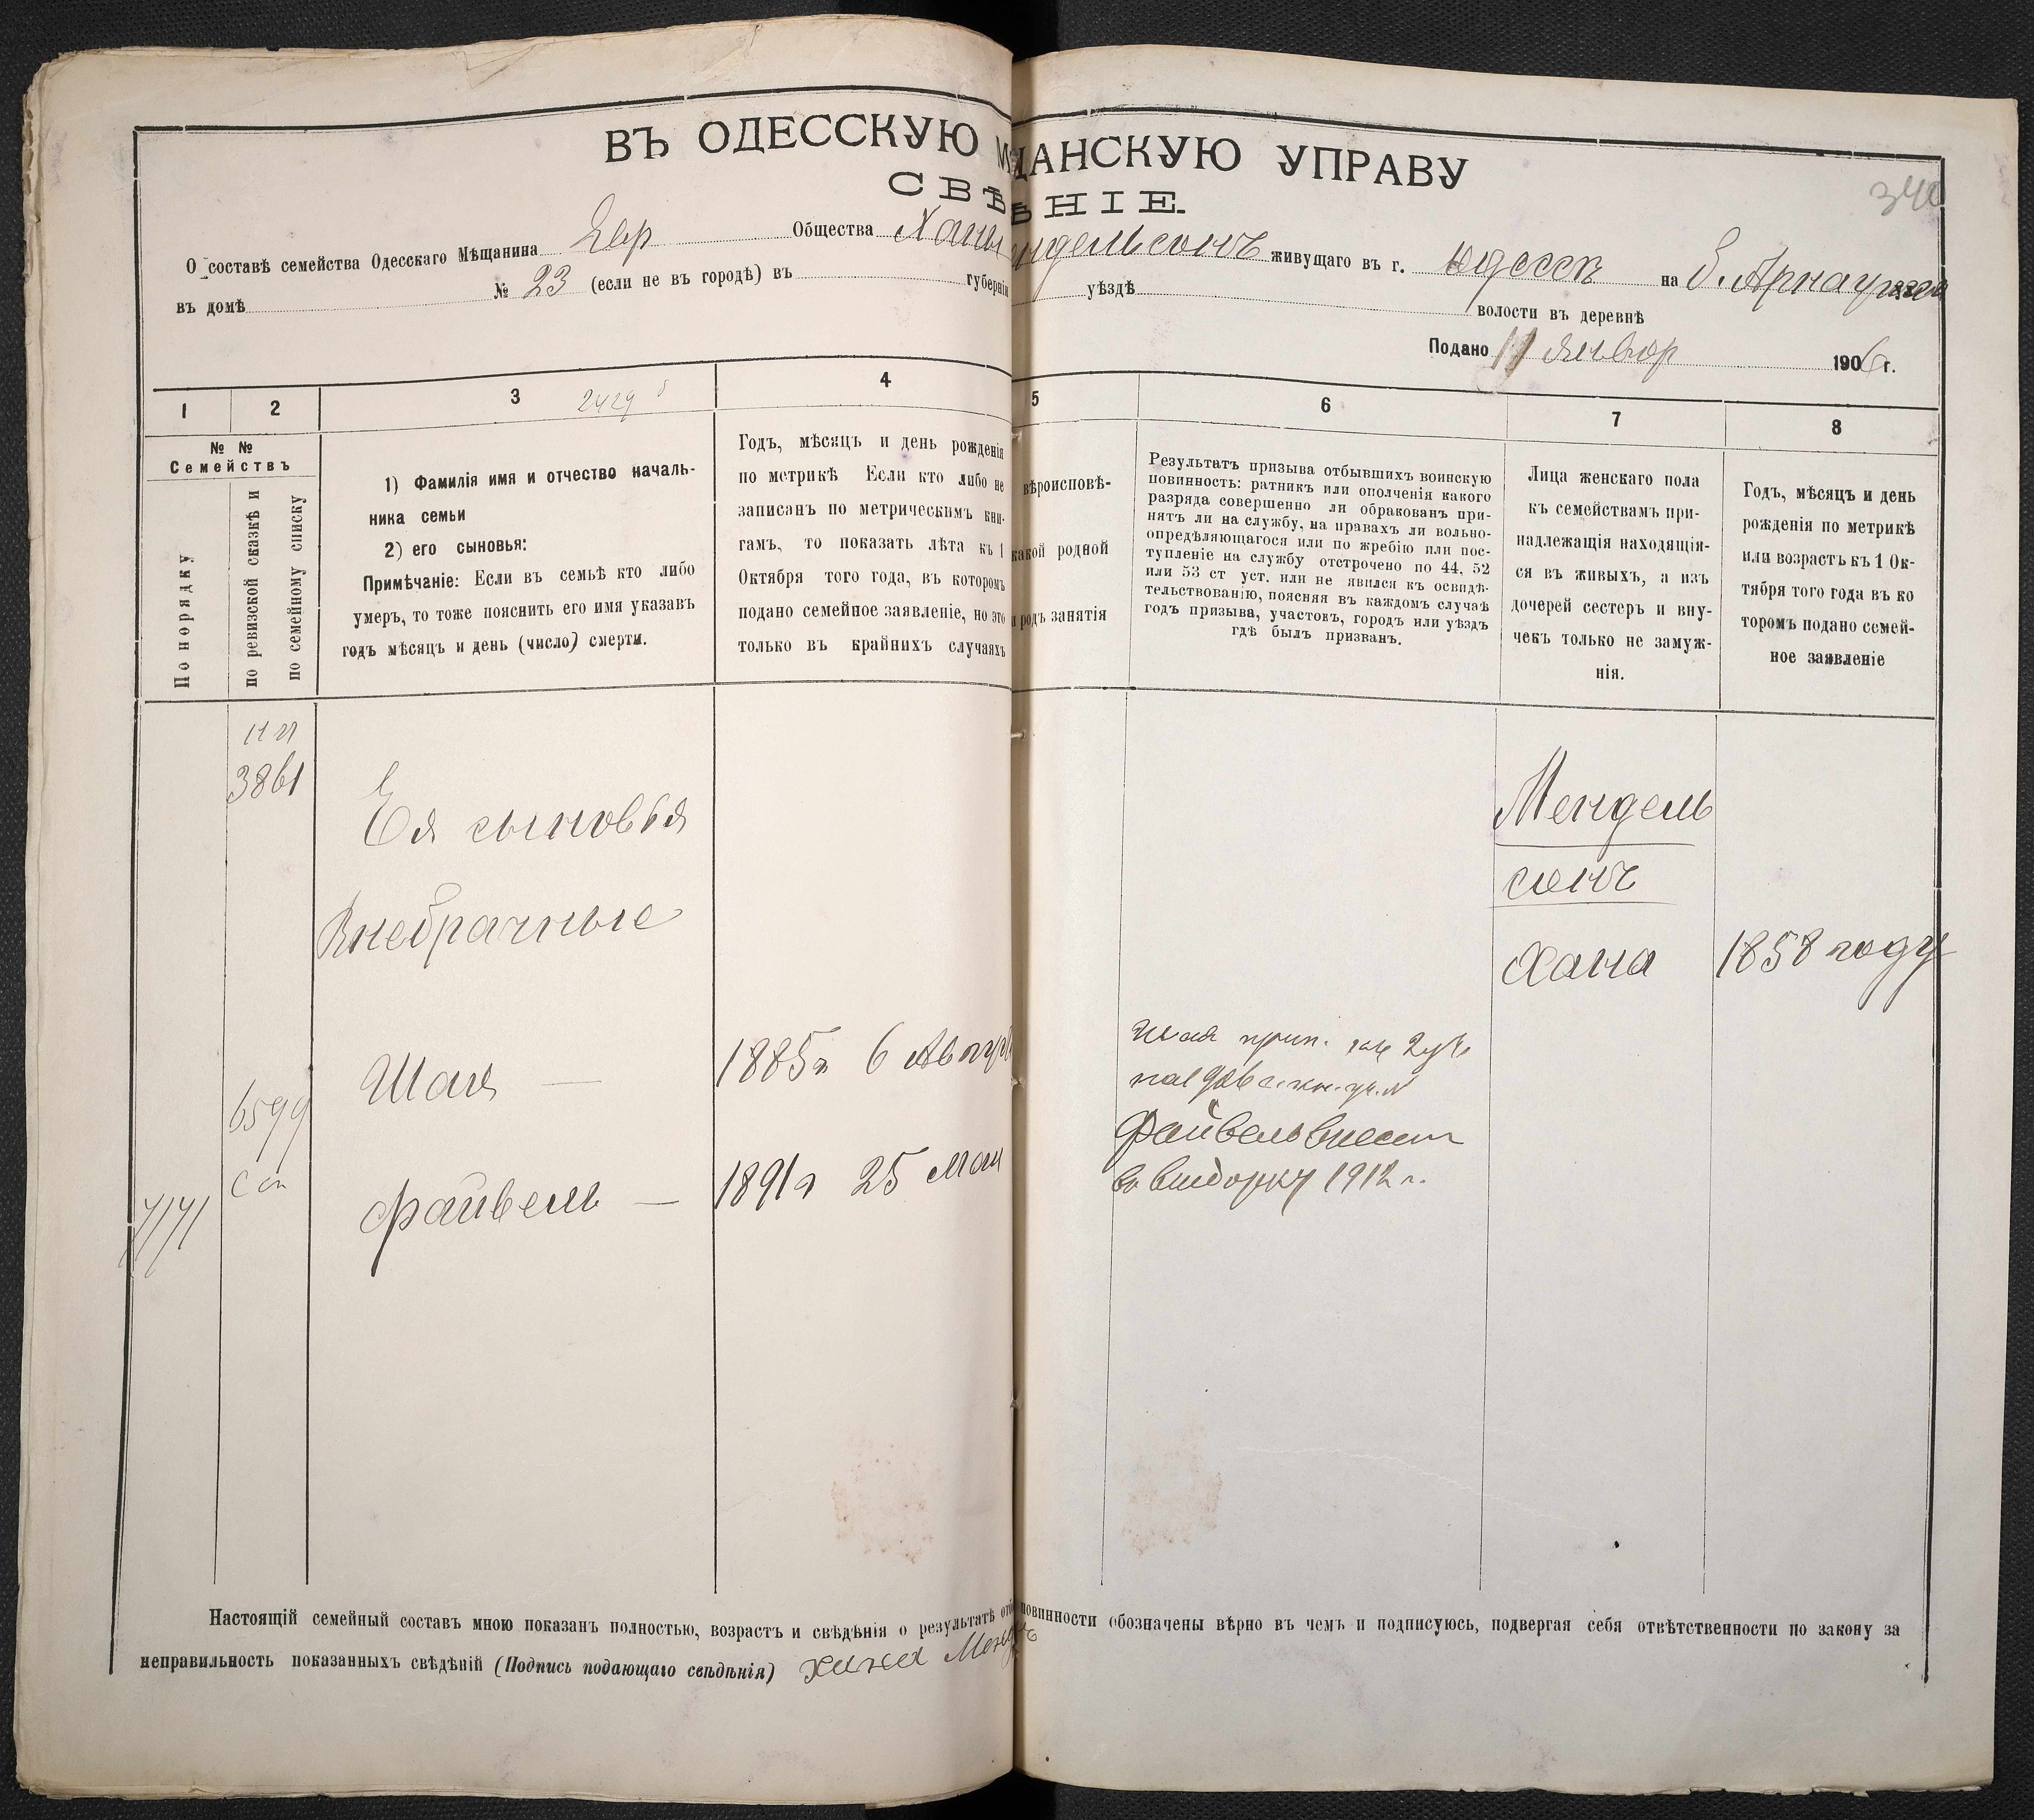 ВЪ ОДЕССКУЮ М ЩАНСКУЮ УПРАВУ
СВѢ ѢНІЕ.
340
О составѣ семейства Одесскаго Мѣщанина Евр Общества Ханы ндельсонъ живущаго въ г. Одессѣ на Б. Арнаутской
въ домѣ № 23 (если не въ городѣ) въ губерніи уѣздѣ волости въ деревнѣ
Подано 11 Январ 1906 г.
1 2 3 2429 4 5 6 7 8
№ №
Семействъ
По порядку
по ревизской сказкѣ и
по семейному списку
1) Фамилія имя и отчество началь-
ника семьи
2) его сыновья:
Примѣчаніе: Если въ семьѣ кто либо
умеръ, то тоже пояснить его имя указавъ
годъ мѣсяцъ и день (число) смерти.
Годъ, мѣсяцъ и день рожденія
по метрикѣ Если кто либо не
записанъ по метрическимъ кни-
гамъ, то показать лѣта къ 1
Октября того года, въ которомъ
подано семейное заявленіе, но это
только въ крайнихъ случаяхъ
вѣроисповѣ-
какой родной
и родъ занятія
Результатъ призыва отбывшихъ воинскую
повинность: ратникъ или ополченія какого
разряда совершенно ли обракованъ при-
нятъ ли на службу, на правахъ ли вольно-
опредѣляющагося или по жребію или пос-
тупленіе на службу отстрочено по 44, 52
или 53 ст уст. или не явился къ освидѣ-
тельствованію, поясняя въ каждомъ случаѣ
годъ призыва, участокъ, городъ или уѣздъ
гдѣ былъ призванъ.
Лица женскаго пола
къ семействамъ при-
надлежащія находящія-
ся въ живыхъ, а изъ
дочерей сестеръ и вну-
чекъ только не замуж-
нія.
Годъ, мѣсяцъ и день
рожденія по метрикѣ
или возрастъ къ 1 Ок-
тября того года въ ко
торомъ подано семей-
ное заявленіе
3861
Ея сыновья
Внебрачные
Мендель
сонъ
Хана 1858 году
Шая — 1885 г 6 Авгус
Шая
6599
Файвель — 1891 г 25 Мая
Файвель внесен
в выборку 1912 г.
7171
Настоящій семейный составъ мною показанъ полностью, возрастъ и свѣдѣнія о результатѣ отб повинности обозначены вѣрно въ чемъ и подписуюсь, подвергая себя отвѣтственности по закону за
неправильность показанныхъ свѣдѣній (Подпись подающаго свѣдѣнія) Хана Менд